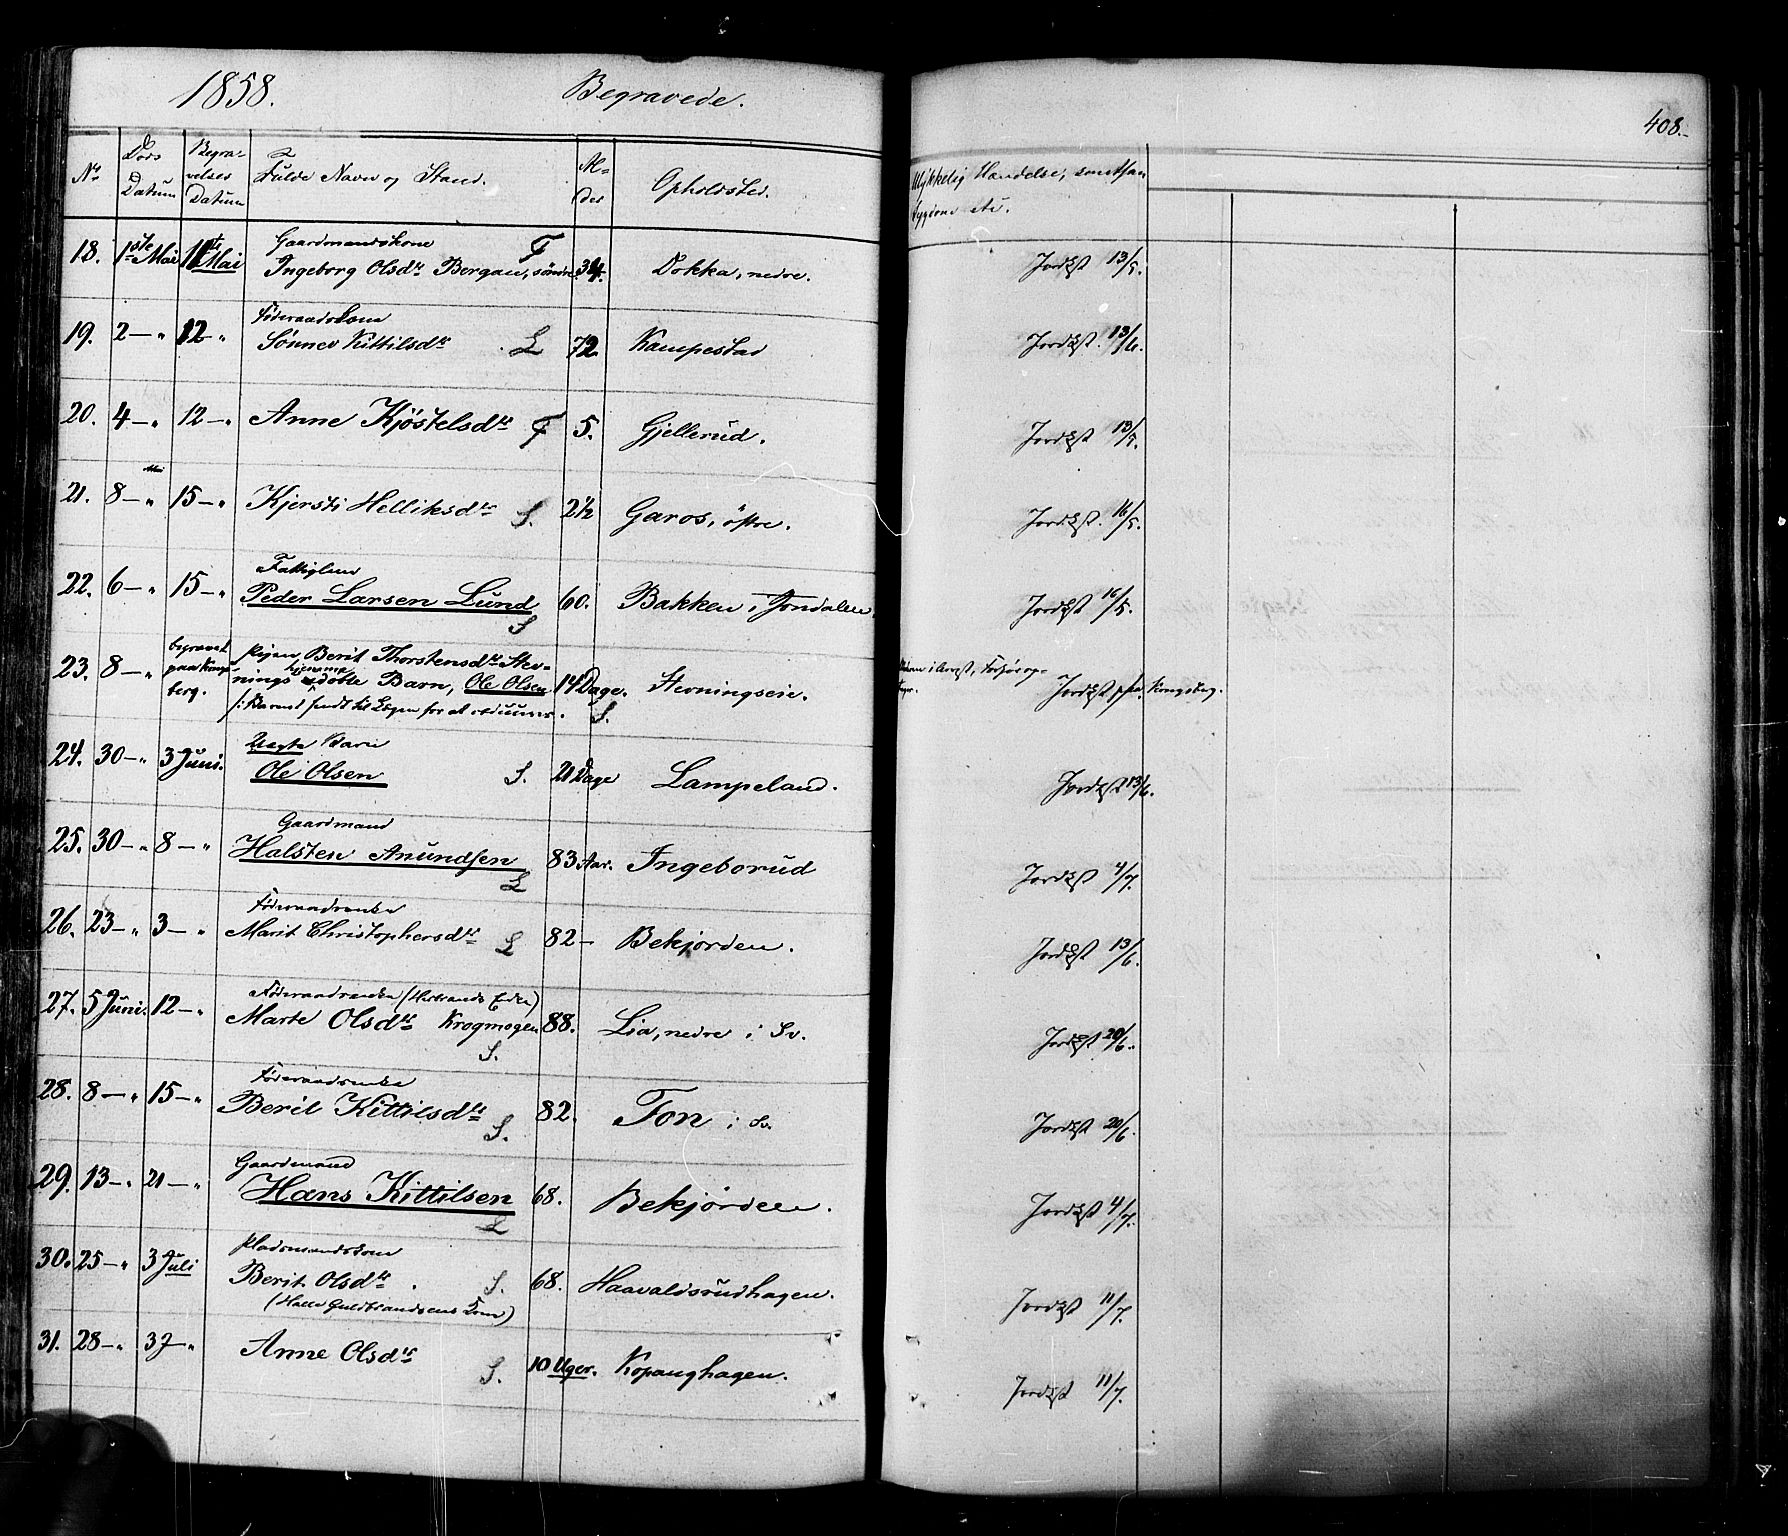 1858. Begravede.
408.
No Døds Datum Begravelses Datum Fulde Navn og Stand. Alder Opholdsted.
Ulykkelig Hændelse,
18. 1ste Mai 11te Mai Gaardmandskone
Ingeborg Olsdtr Bergan, søndre. F 34. Dokka, nedre. Jordkst 13/5.
19. 2 — " 12 — " Føderaadskone
Sønnev Kittilsdtr L 72. Kampestad Jordkst. 13/6.
20. 4 — " 12 — " Anne Kjöstelsdtr F 5. Gjellerud. Jordkst 13/5.
21. 8 — " 15 — " Kjersti Helliksdtr S. 2 1/2 Garos, östre. Jordkst. 16/5.
22. 6 — " 15 — " Fattiglem
Peder Larsen Lund S 60. Bakken i Jondalen. Jordkst 16/5.
23. 8 — " begravet paa Kongsberg. Pigen Berit Thorstensdtr Stev-
nings hjemmedöbte Barn, Ole Olsen 14 Dage. S. Stevningseie. Jordkst paa Kongsberg.
24. 30 — " 3 Juni. Uægte Barn
Ole Olsen S. 21 Dage Lampeland. Jordkst 13/6.
25. 30 — " 8 — " Gaardmand
Halsten Anundsen L 83 Aar. Ingeborud Jordkst 4/7.
26. 23 — " 3 — " Føderaadsenke
Marit Christophersdtr L 82 — Bekjorden. Jordkst 13/6.
27. 5 Juni. 12 — " Føderaadsenke
Marte Olsdtr Krogmogen S. 88. Lia, nedre i Sv. Jordkst 20/6.
28. 8 — " 15 — " Føderaadsenke
Berit Kittilsdtr S. 82. Fon i Sv. Jordkst 20/6.
29. 13 — " 21 — " Gaardmand
Hans Kittilsen L 68. Bekjörden. Jordkst 4/7.
30. 25 — " 3 Juli Pladsmandskone
Berit Olsdtr. S. 68. Haavaldsrudhagen. Jordkst 11/7.
(Halle Guldbrandsens Kone)
31. 28 — " 3 — " Anne Olsdtr S. 10 Uger. Kopanghagen. Jordkst 11/7.